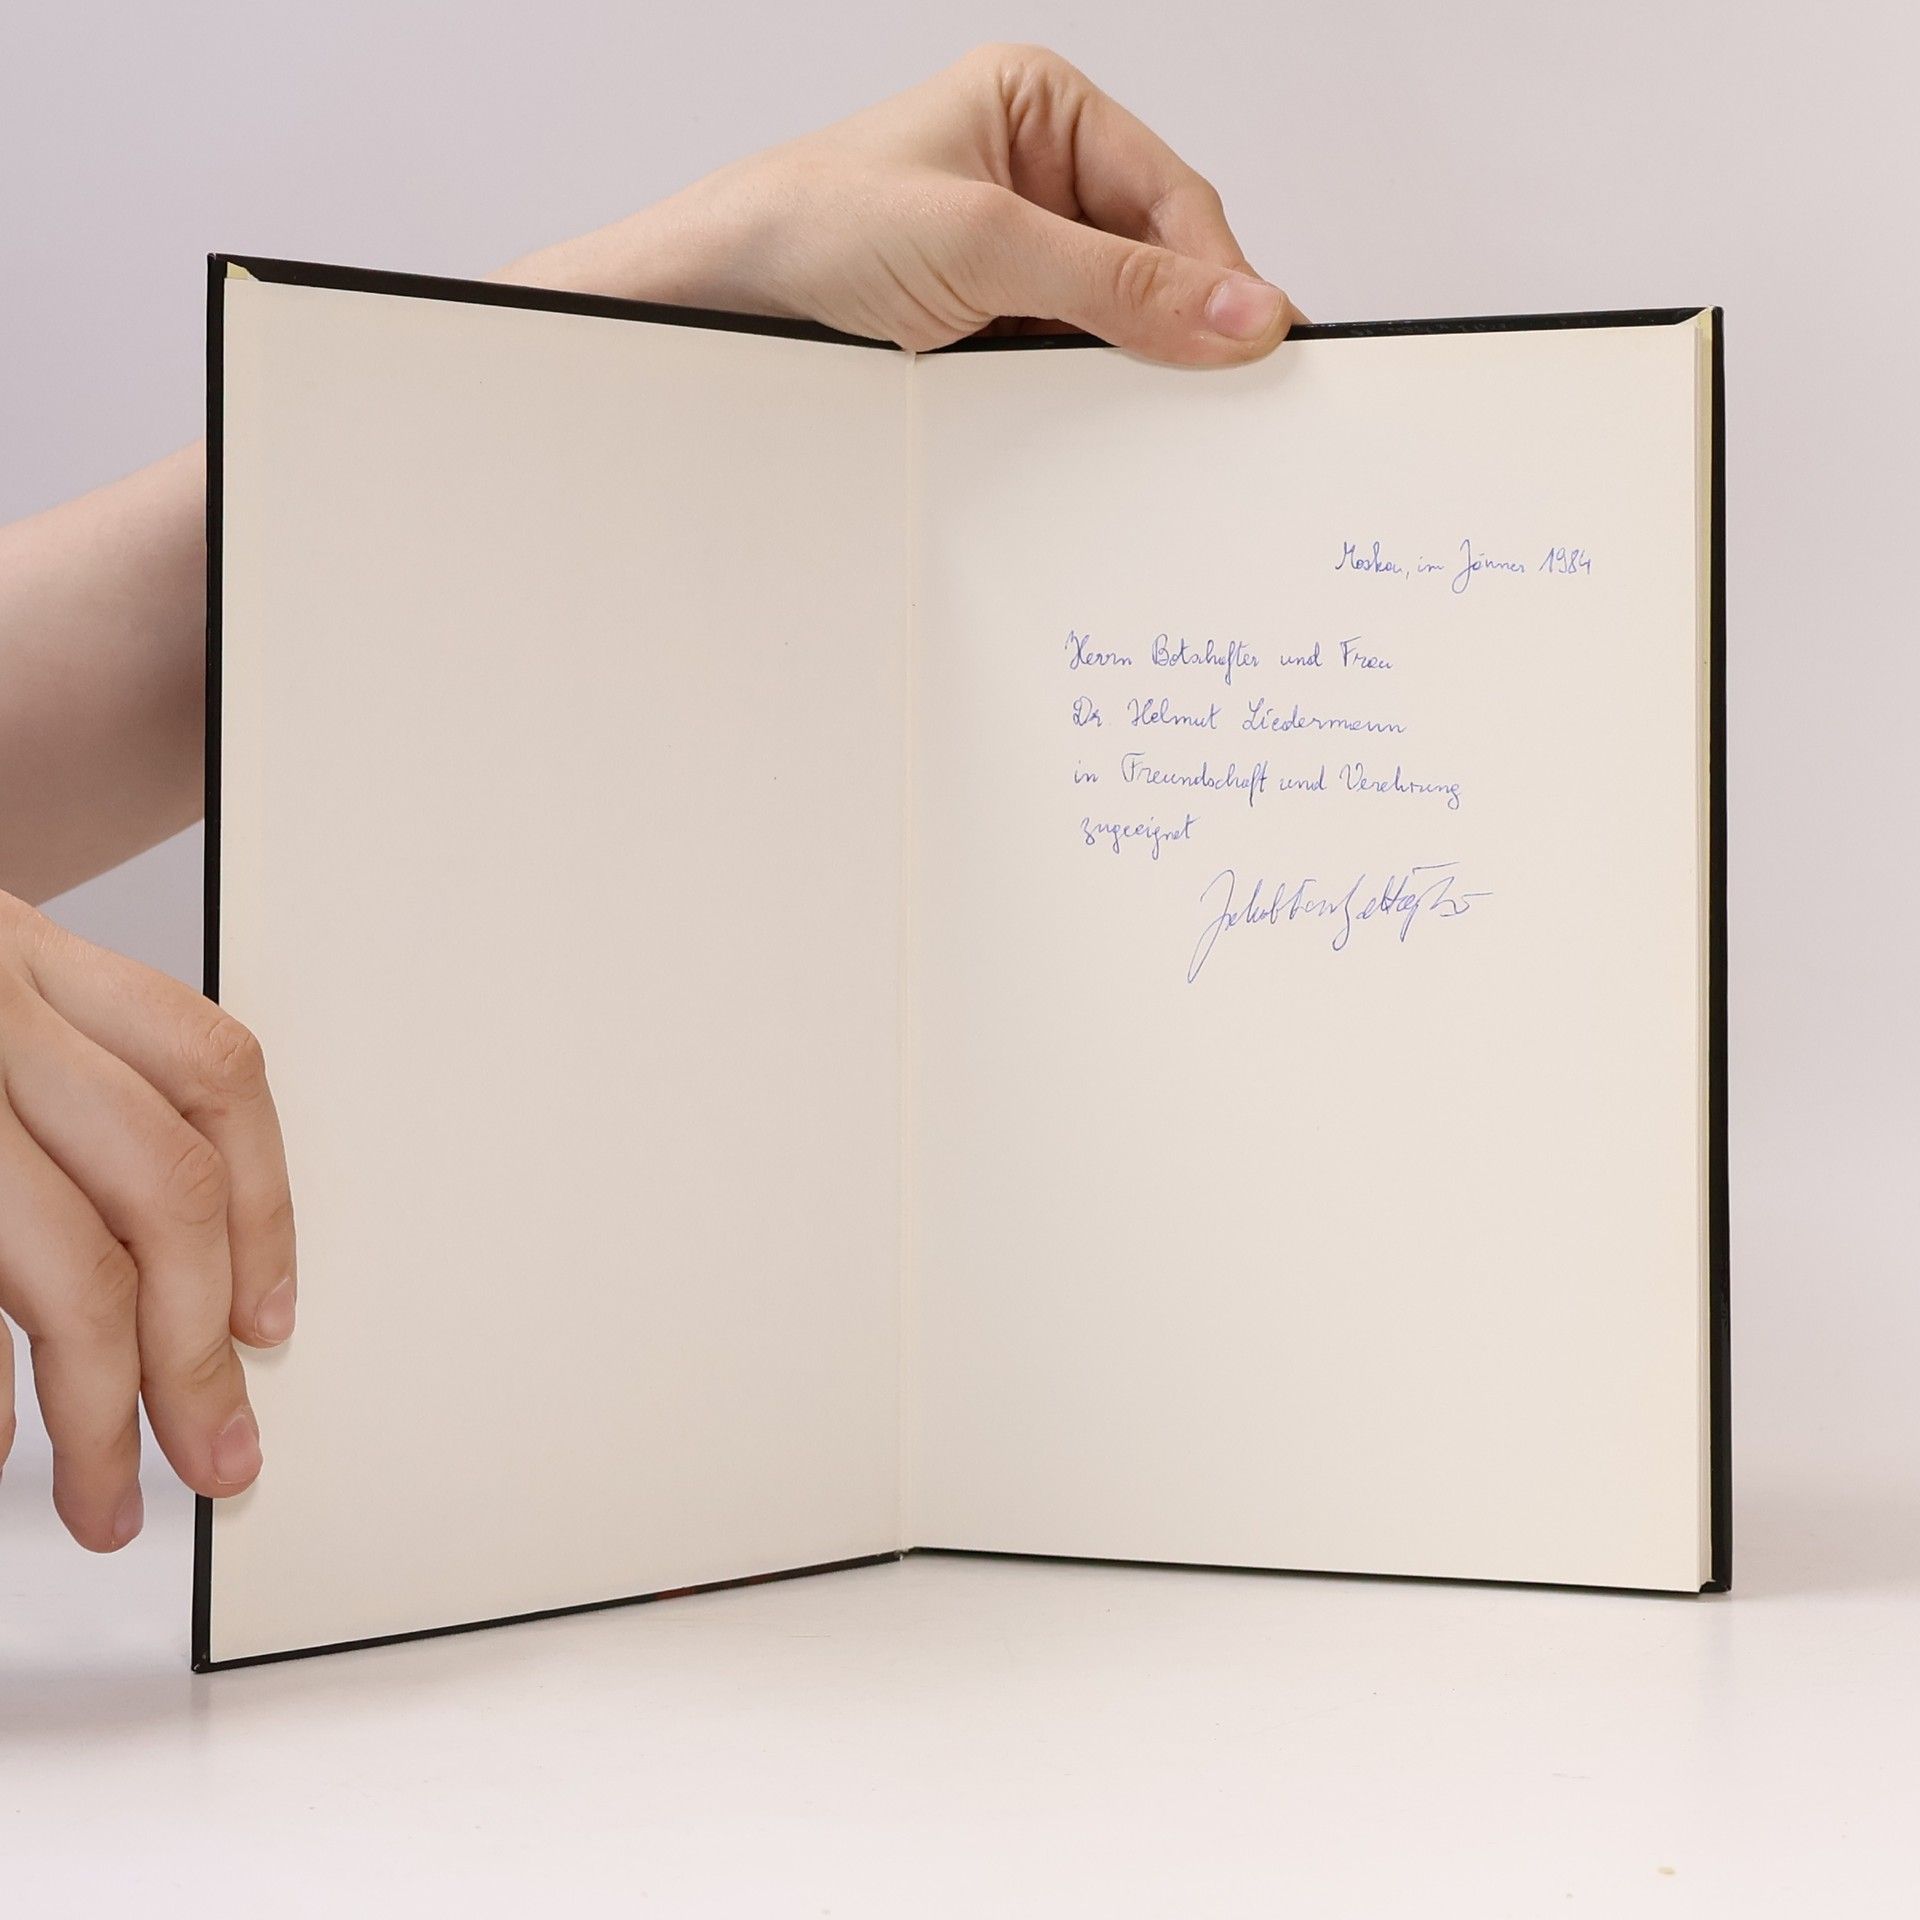 Moskau, im Jänner 1984
Herrn Botschafter und Frau
Dr. Helmut Liedermann
in Freundschaft und Verehrung
zugeeignet